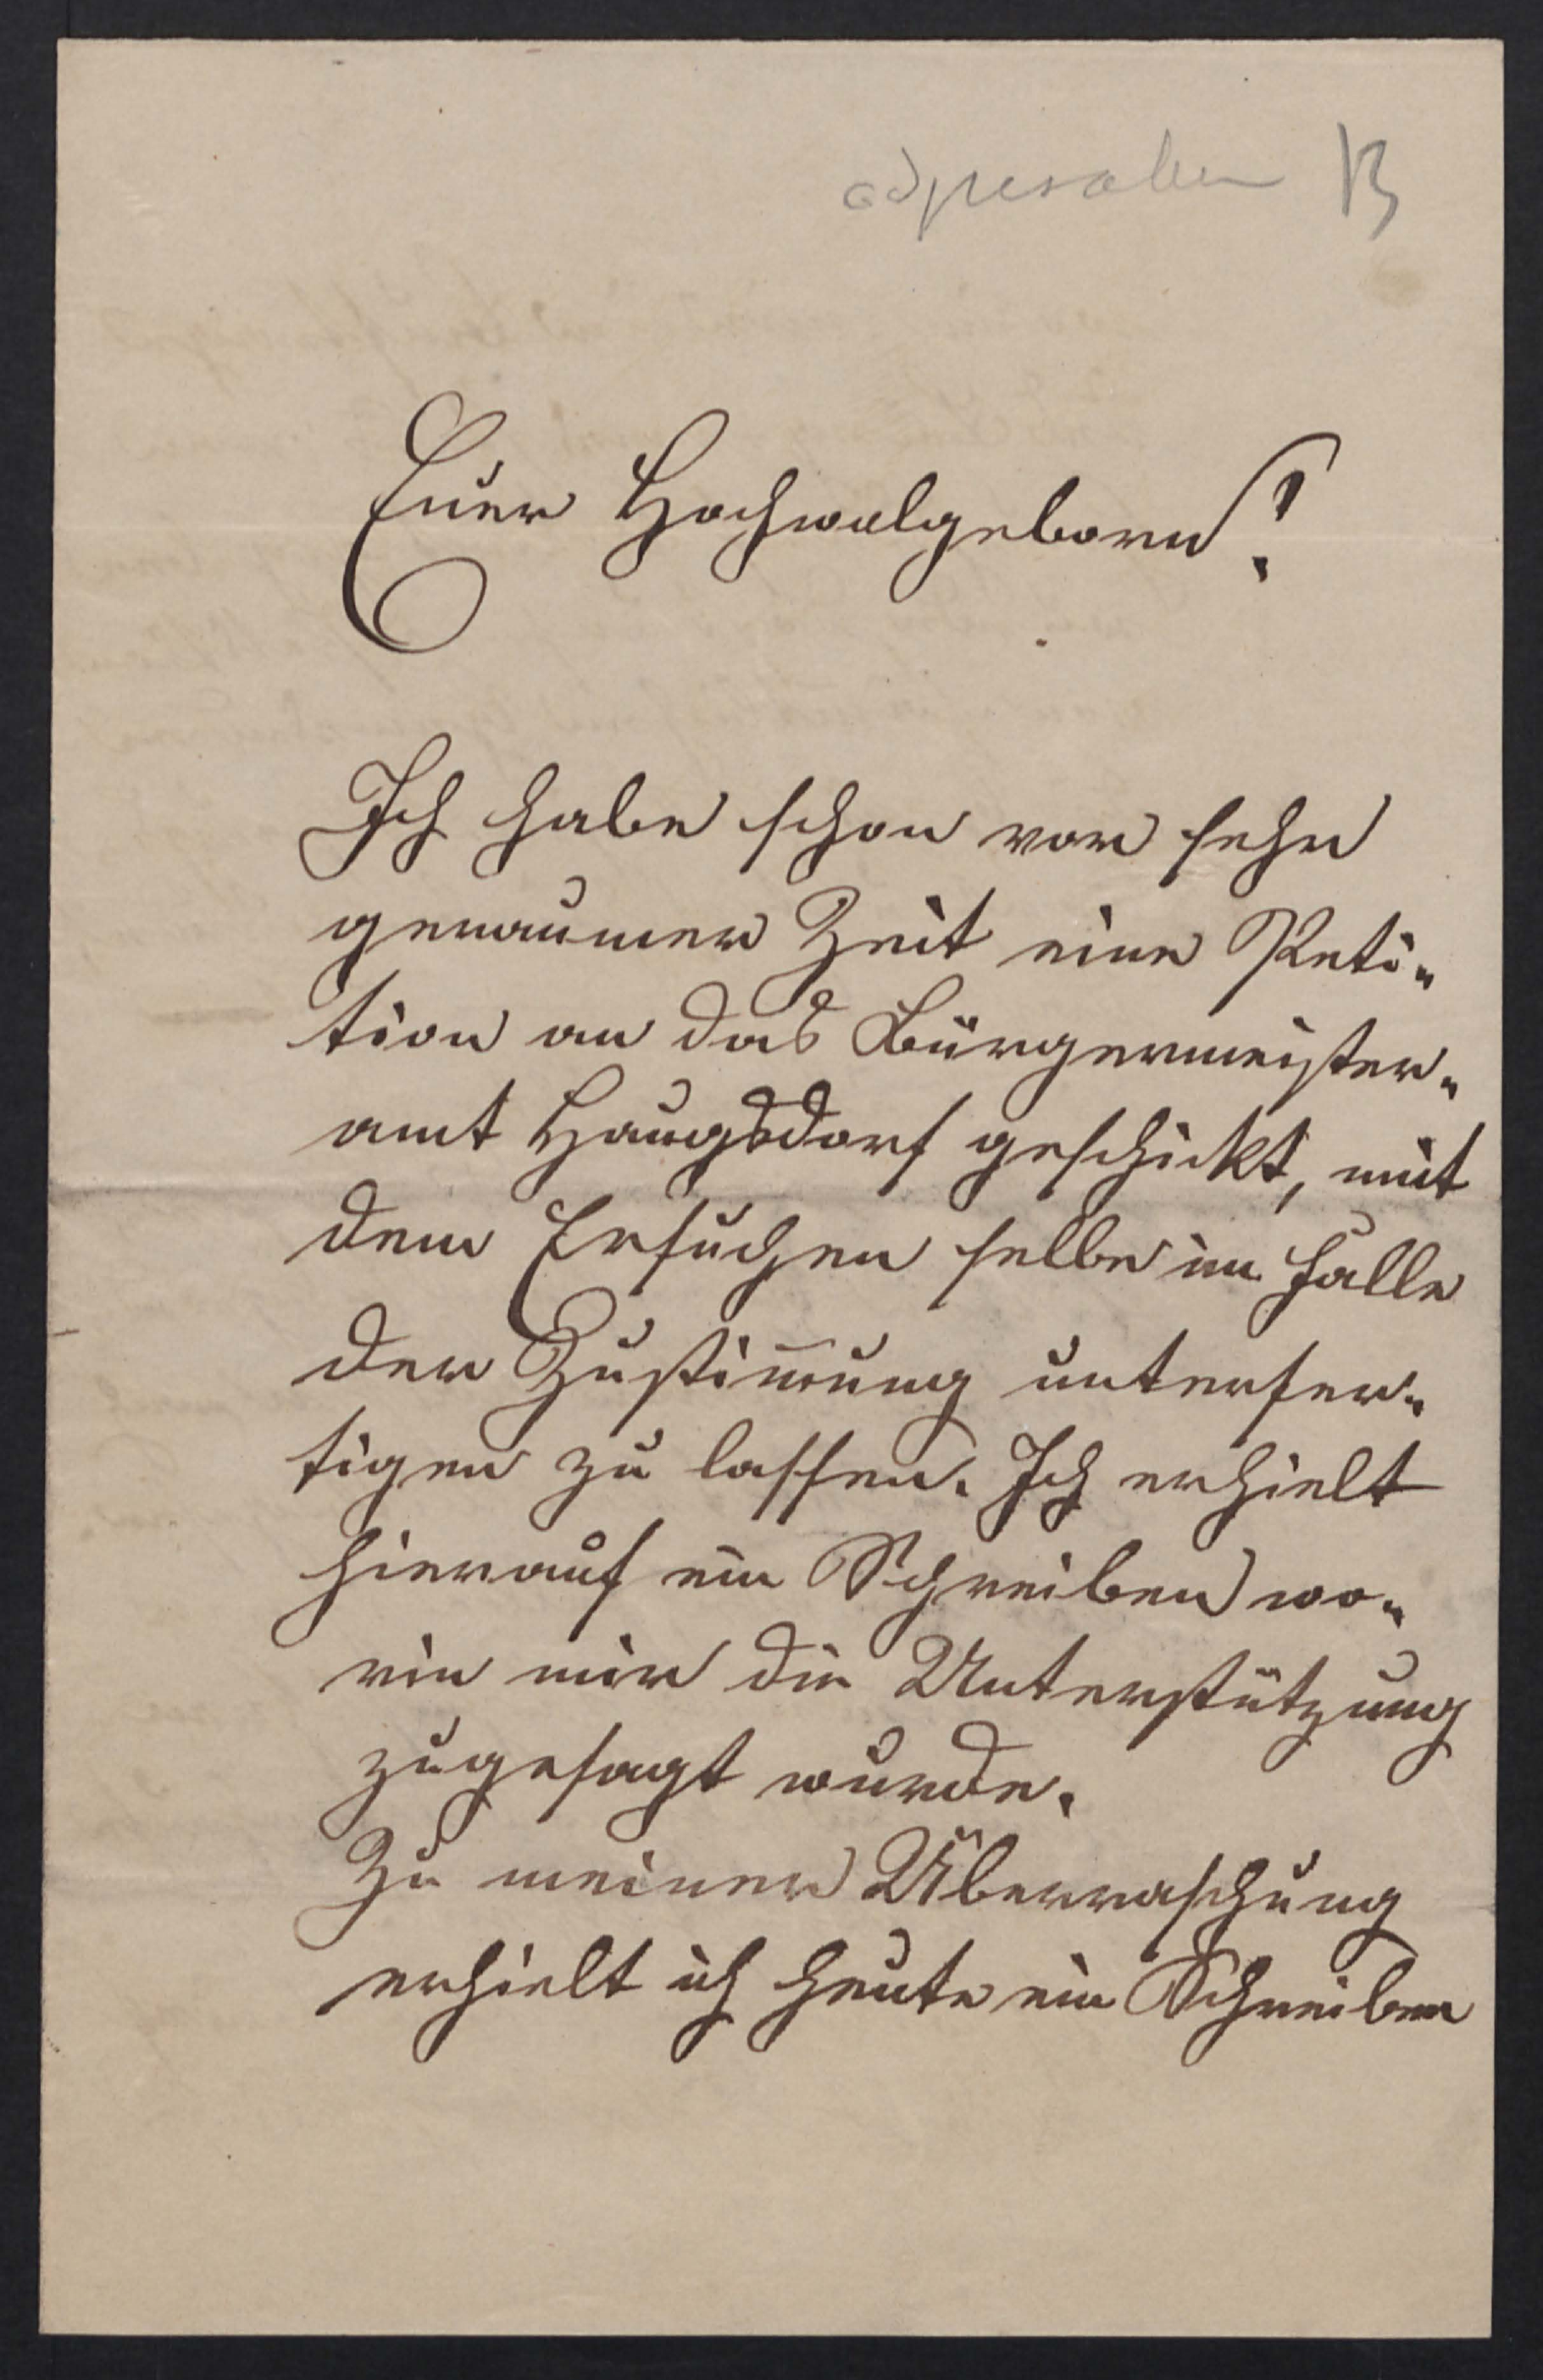 B
Euer Hochwolgeboren!
Ich habe schon vor sehr
geraumer Zeit eine Peti-
tion an das Bürgermeister-
amt Haugsdorf geschickt, mit
dem Ersuchen selbe im Falle
der Zustim̅ung unterfer-
tigen zu lassen. Ich erhielt
hierauf ein Schreiben wo-
rin mir die Unterstützung
zugesagt wurde.
Zu meiner Überraschung
erhielt ich heute ein Schreiben